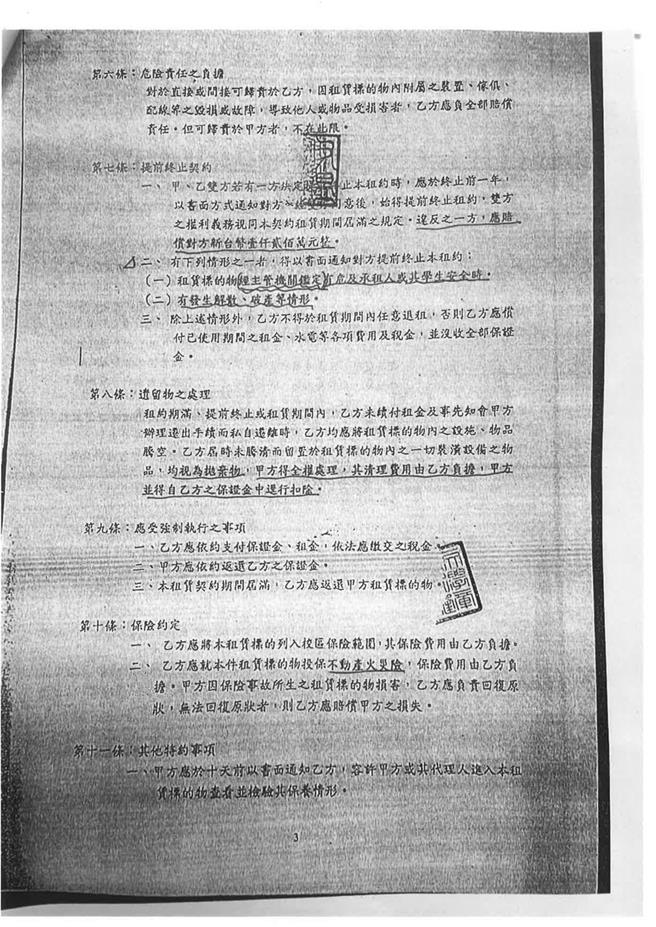 第六條：危險責任之負擔
對於直接或間接可歸責於乙方，因租賃標的物內附屬之裝置、傢俱、
配線等之毀損或故障，導致他人或物品受損害者，乙方應負全部賠償
責任。但可歸責於甲方者，不在此限。
第七條：提前終止契約
一、 甲、乙雙方若有一方決定 止本租約時，應於終止前一年，
以書面方式通知對方 經 同意後，始得提前終止租約，雙方
之權利義務視同本契約租賃期間屆滿之規定。違反之一方，應賠
償對方新台幣壹仟貳佰萬元整。
二、 有下列情形之一者，得以書面通知對方提前終止本租約：
(一) 租賃標的物經主管機關鑑定有危及承租人或其學生安全時。
(二) 有發生解散、破產等情形。
三、 除上述情形外，乙方不得於租賃期間內任意退租，否則乙方應償
付已使用期間之租金、水電等各項費用及稅金，並沒收全部保證
金。
第八條：遺留物之處理
租約期滿、提前終止或租賃期間內，乙方未續付租金及事先知會甲方
辦理遷出手續而私自遷離時，乙方均應將租賃標的物內之設施、物品
騰空。乙方屆時未騰清而留置於租賃標的物內之一切裝潢設備之物
品，均視為拋棄物，甲方得全權處理，其清理費用由乙方負擔，甲方
並得自乙方之保證金中逕行扣除。
第九條：應受強制執行之事項
一、乙方應依約支付保證金、租金，依法應繳交之稅金。
二、甲方應依約返還乙方之保證金。
三、本租賃契約期間屆滿，乙方應返還甲方租賃標的物。
第十條：保險約定
一、 乙方應將本租賃標的列入校區保險範圍，其保險費用由乙方負擔。
二、 乙方應就本件租賃標的物投保不動產火災險，保險費用由乙方負
擔。甲方因保險事故所生之租賃標的物損害，乙方應負責回復原
狀，無法回復原狀者，則乙方應賠償甲方之損失。
第十一條：其他特約事項
一、甲方應於十天前以書面通知乙方，容許甲方或其代理人進入本租
賃標的物查看並檢驗其保養情形。
3